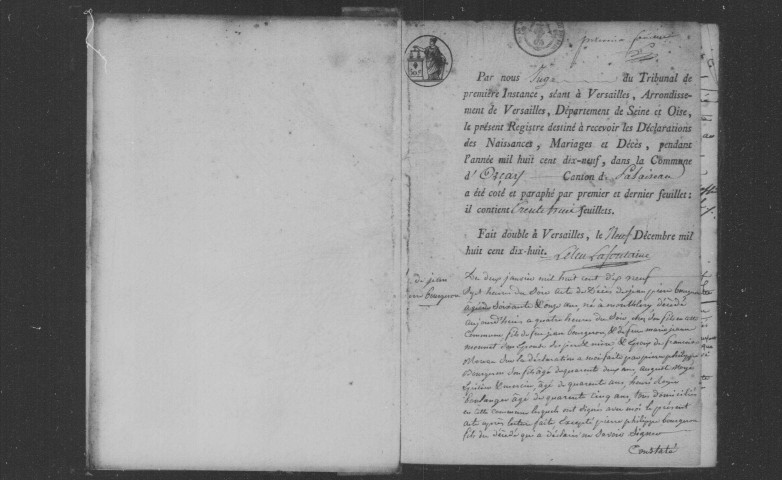 premier feuillet
Par nous Juge du Tribunal de
première Instance, séant à Versailles, Arrondisse-
ment de Versailles, Département de Seine et Oise,
le présent Registre destiné à recevoir les Déclarations
des Naissances, Mariages et Décès, pendant
l'année mil huit cent dix-neuf, dans la Commune
d'Orçay Canton d Palaiseau
a été coté et paraphé par premier et dernier feuillet;
il contient trente huit feuillets.
Fait double à Versailles, le Neuf Décembre mil
huit cent dix-huit.
de jean
bourgnon
Du deux janvier mil huit cent dix neuf
Sept heures du Soir acte de Décès de jean pierre bourgnon
agé de Soixante & onze ans, né à montlhery décédé
aujourd'hui a quatre heures du Soir chez son fils en cette
Commune fils de feu jean bourgnon, & de feu marie jeanne
monnet Ses père & mère & Epoux de francoise
Moreau Sur la déclaration a moi faite par pierre philippe
Bourgnon Son fils âgé de quarante deux ans, august Royer
Epicier & mercier, âgé de quarante ans, Royer
boulanger âgé de quarante cinq ans, tous domiciliés
en cette commune lesquels ont signés avec moi le présent
acte après lecture faite Excepté pierre philippe bourgnon
fils du décédé qui a déclaré ne Savoir Signer
Constaté